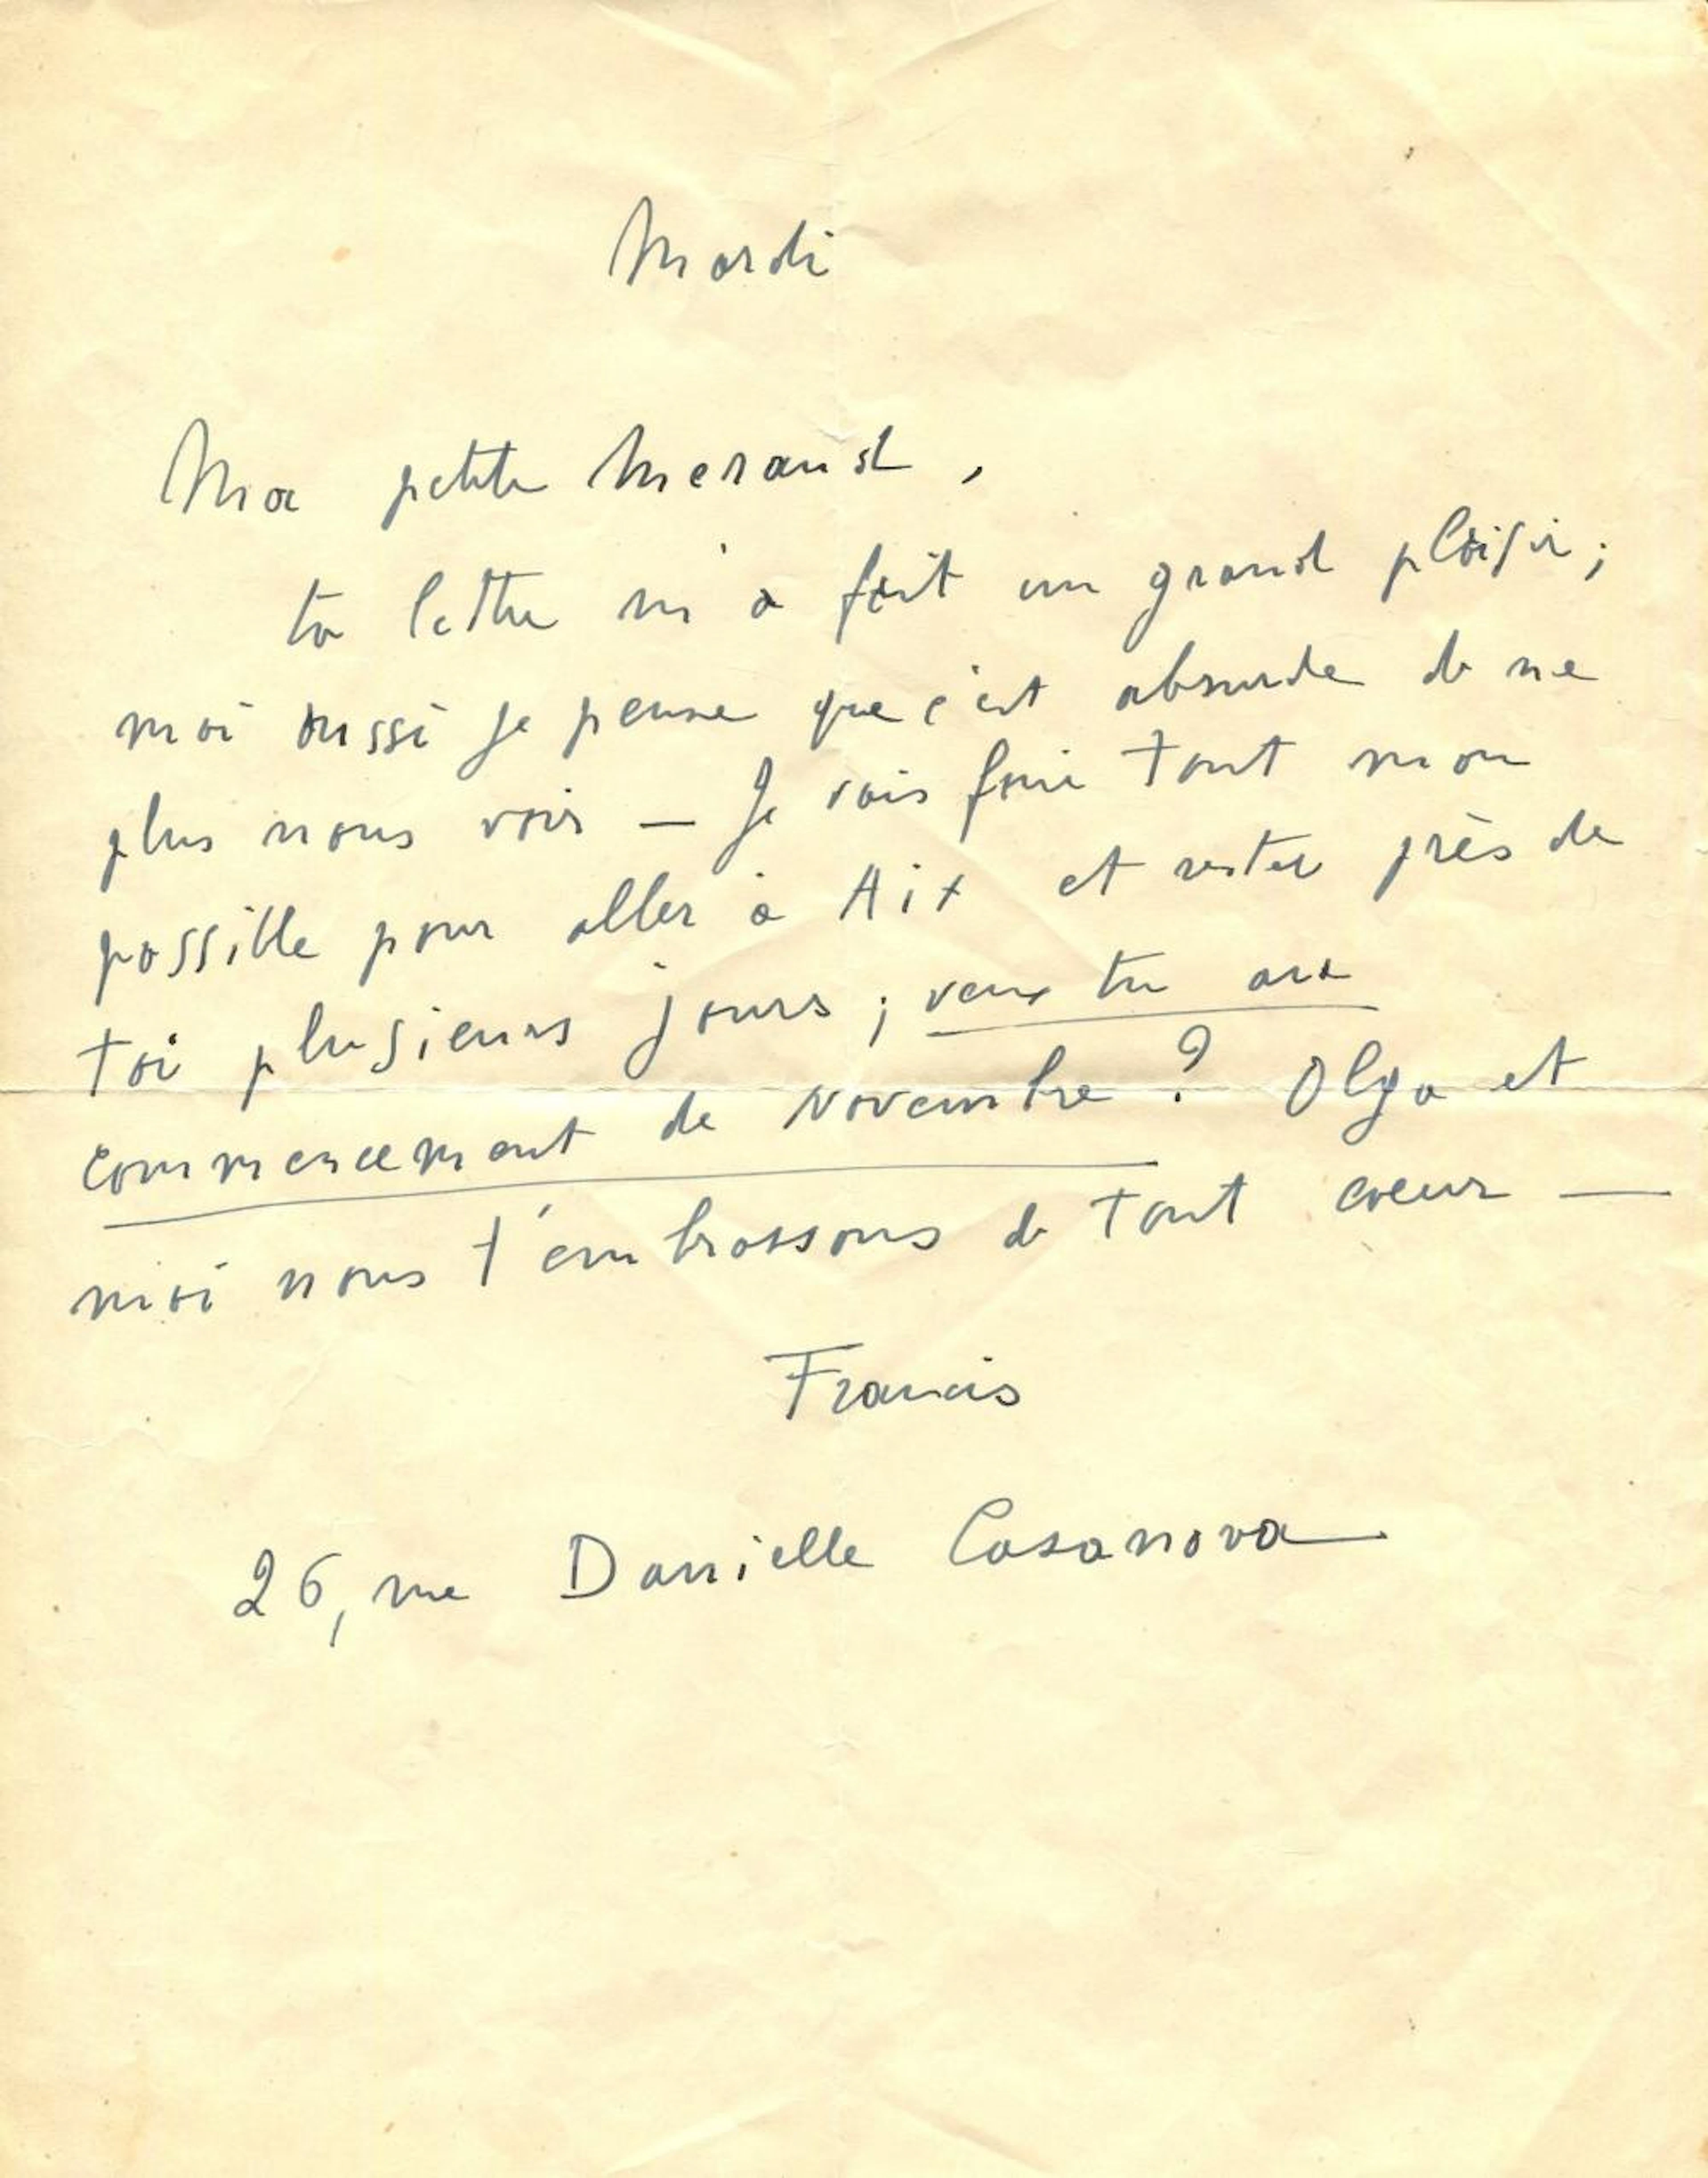 Mardi
Ma petite Meraud,
ta lettre m'a fait un grand plaisir;
moi aussi je pense que c'est absurde de ne
plus nous voir — Je vais faire tout mon
possible pour aller à Aix et rester près de
toi plusieurs jours; veux tu au
commencement de Novembre? Olga et
moi nous t'embrassons de tout coeur —
Francis
26, rue Danielle Casanova